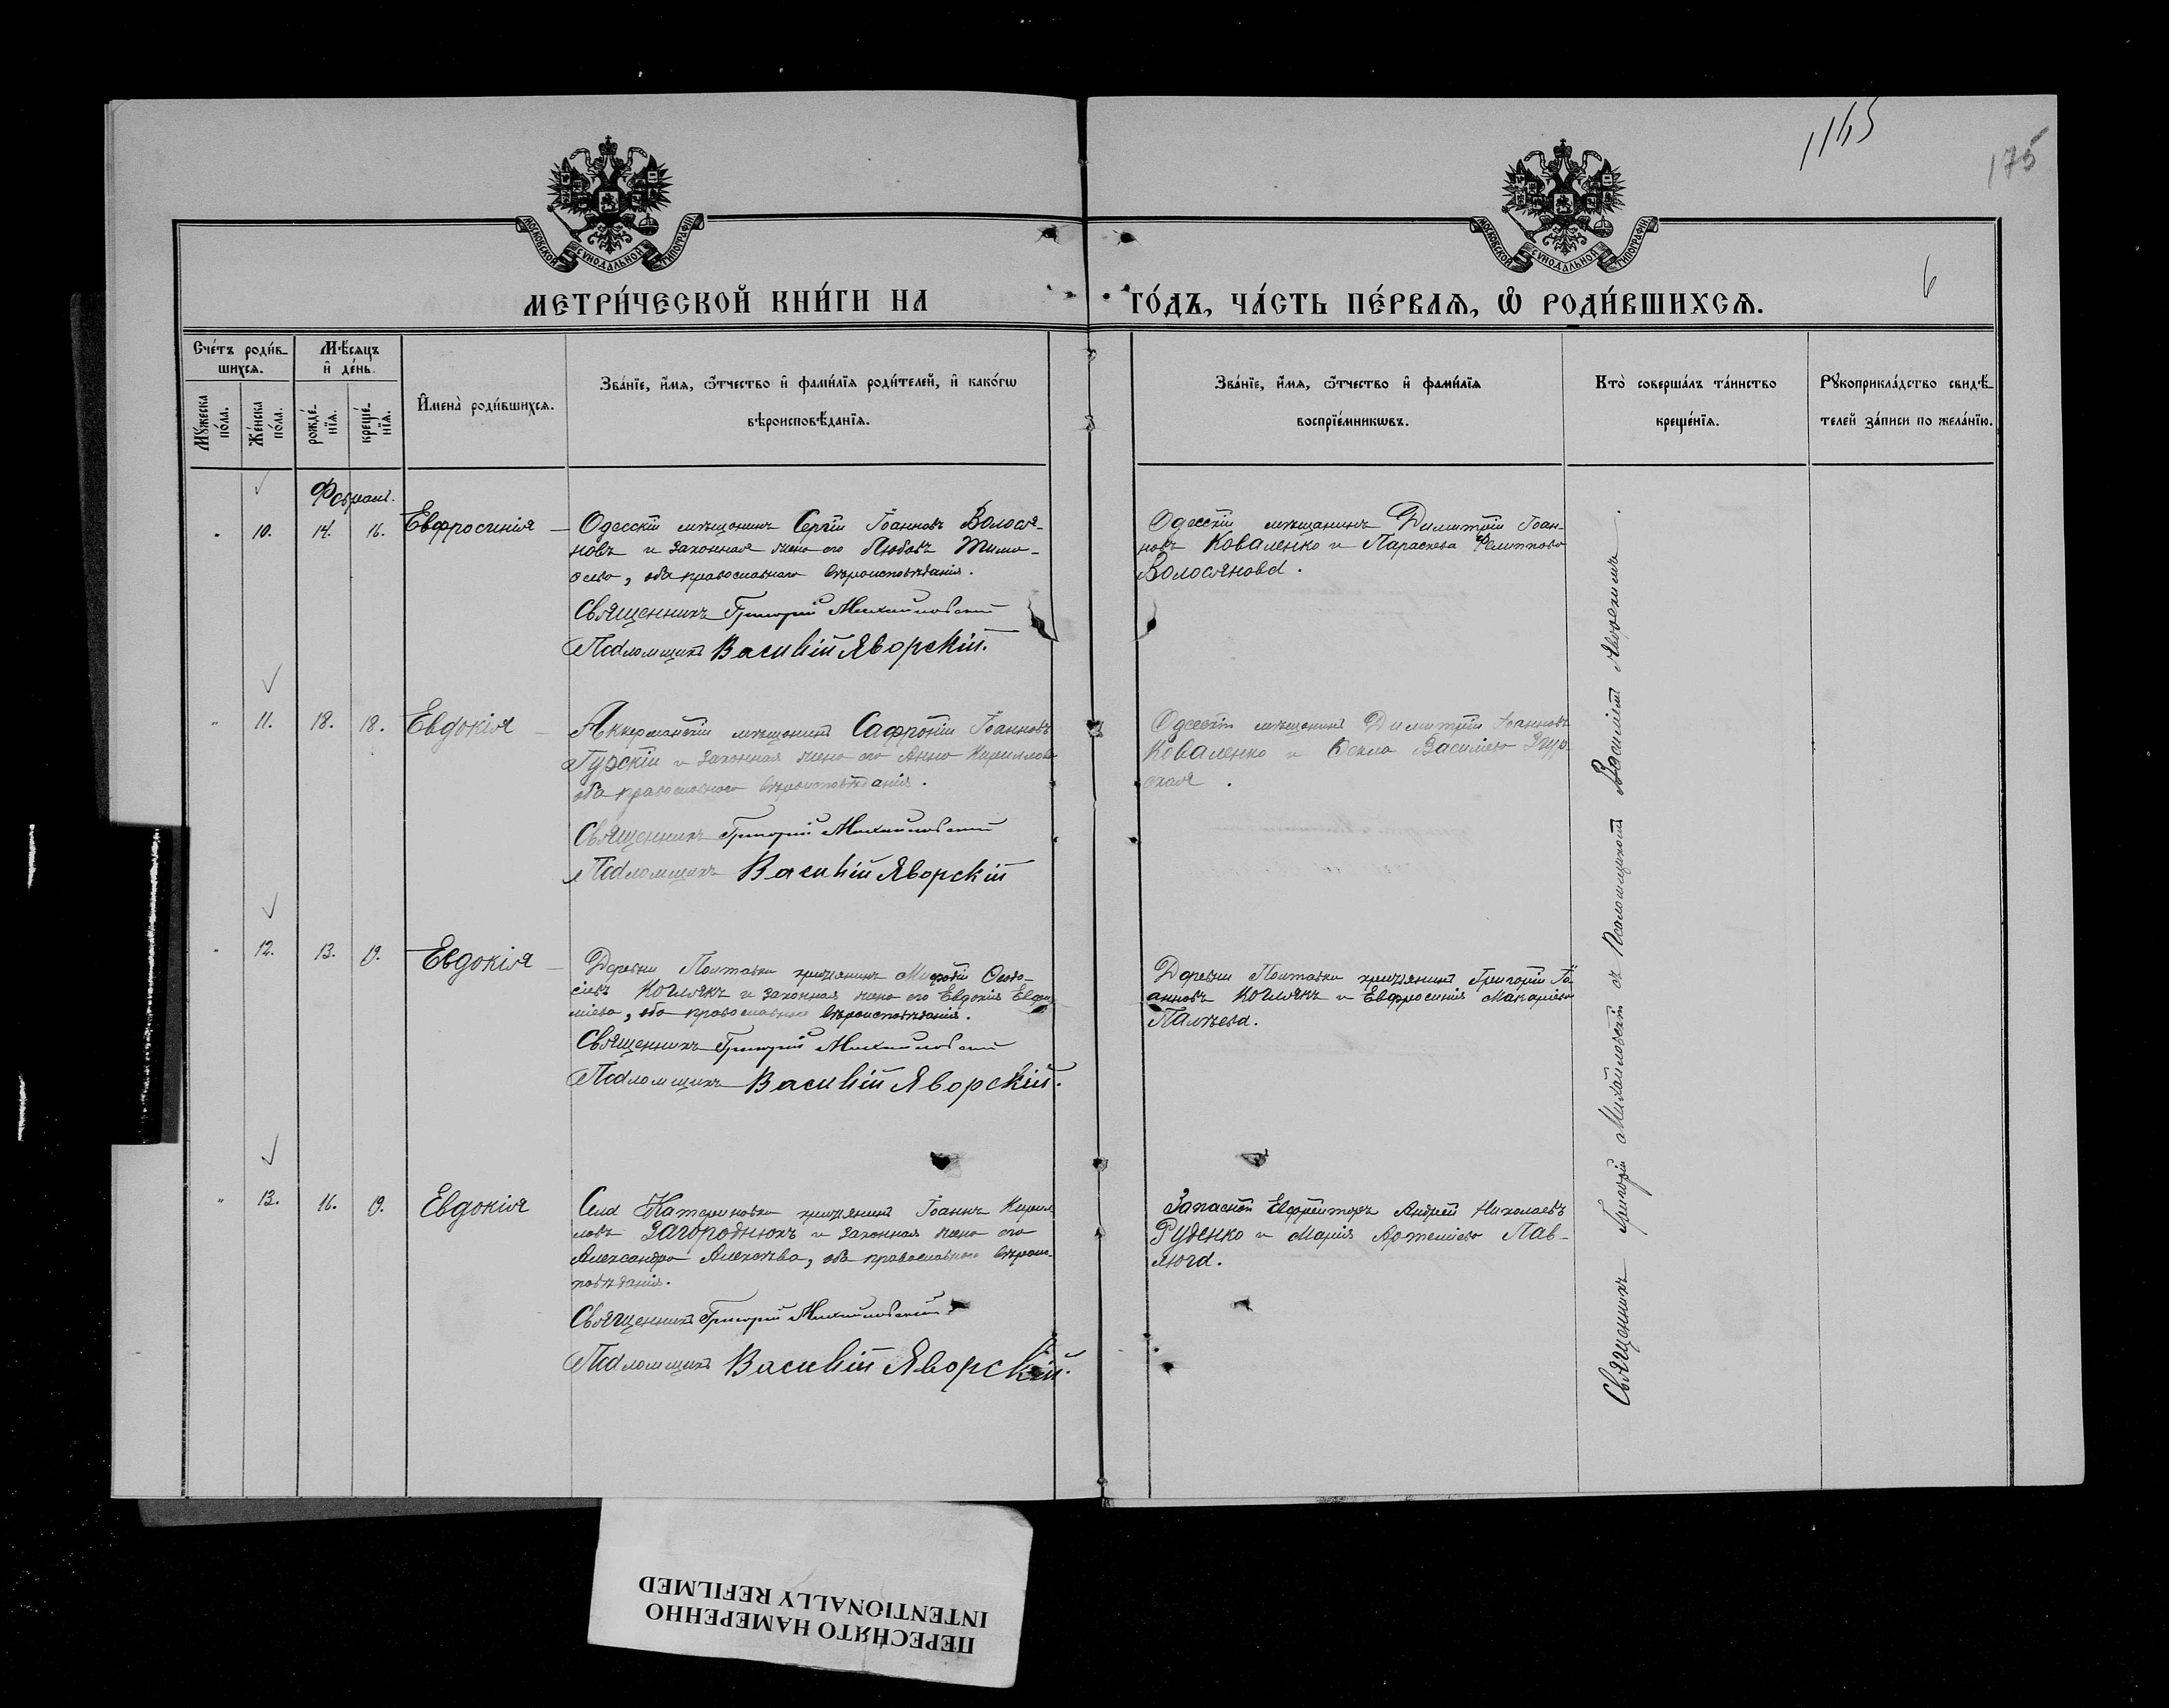 1145
175
МОСКОВСКОЙ СѴНОДАЛЬНОЙ ТИПОГРАФІИ
МОСКОВСКОЙ СѴНОДАЛЬНОЙ ТИПОГРАФІИ
6
МЕТРИ́ЧЕСКОЙ КНИ́ГИ НА
ГО́ДЪ, ЧА́СТЬ ПЕ́РВАѦ, Ѡ҆ РОДИ́ВШИХСѦ.
Сче́тъ роди́в-
шихсѧ.
Мѣ́сѧцъ
и҆ де́нь.
Мꙋ́жеска
по́ла.
Же́нска
по́ла.
рожде́-
нїѧ.
креще́-
нїѧ.
И҆мена̀ роди́вшихсѧ.
Зва́нїе, и҆́мѧ, ѻ҆́тчество и҆ фами́лїѧ роди́телей, и҆ како́гѡ
вѣроисповѣ́данїѧ.
Зва́нїе, и҆́мѧ, ѻ҆́тчество и҆ фами́лїѧ
воспрїе́мникѡвъ.
Кто̀ соверша́лъ та́инство
креще́нїѧ.
Рꙋкоприкла́дство свидѣ́-
телей за́писи по жела́нїю.
Феврал.
" 10. 14. 16. Евфросинія
Одесскій мѣщанинъ Сергій Іоанновъ Волося-
новъ и законная жена его Любовь Тимо-
ѳеева, оба православнаго вѣроисповѣданія.
Священникъ Григорій Михайловскій
Псаломщикъ Василій Яворскій.
Одесскій мѣщанинъ Димитрій Іоан-
новъ Коваленко и Параскева Филиппова
Волосянова.
" 11. 18. 18. Евдокія
Аккерманскій мѣщанинъ Сафроній Іоанновъ
Гурскій и законная жена его Анна Кириллова
оба православнаго вѣроисповѣданія.
Священникъ Григорій Михайловскій
Псаломщикъ Василій Яворскій
Одесскій мѣщанинъ Димитрій Іоанновъ
Коваленко и Ѳекла Васильева
ская.
" 12. 13. 19. Евдокія
Деревни Полтавки крестьянинъ Ѳеодо-
сіевъ Когилякъ и законная жена его Евдокія Евфи-
міева, оба православнаго вѣроисповѣданія.
Священникъ Григорій Михайловскій
Псаломщикъ Василій Яворскій.
Деревни Полтавки крестьянинъ Григорій Іо-
анновъ Когилякъ и Евфросинія Макаріева
Палѣева.
" 13. 16. 19. Евдокія
Села Катериновки крестьянинъ Іоаннъ Кирил-
ловъ Загороднюкъ и законная жена его
Александра Алексѣева, оба православнаго вѣроис-
повѣданія.
Священникъ Григорій Михайловскій
Псаломщикъ Василій Яворскій.
Запасной Ефрейторъ Андрей Николаевъ
Руденко и Марія Артеміева Пав-
люга.
Священникъ Григорій Михайловскій съ Псаломщикомъ Василіемъ Яворскимъ.
ПЕРЕСНЯТО НАМЕРЕННО
INTENTIONALLY REFILMED